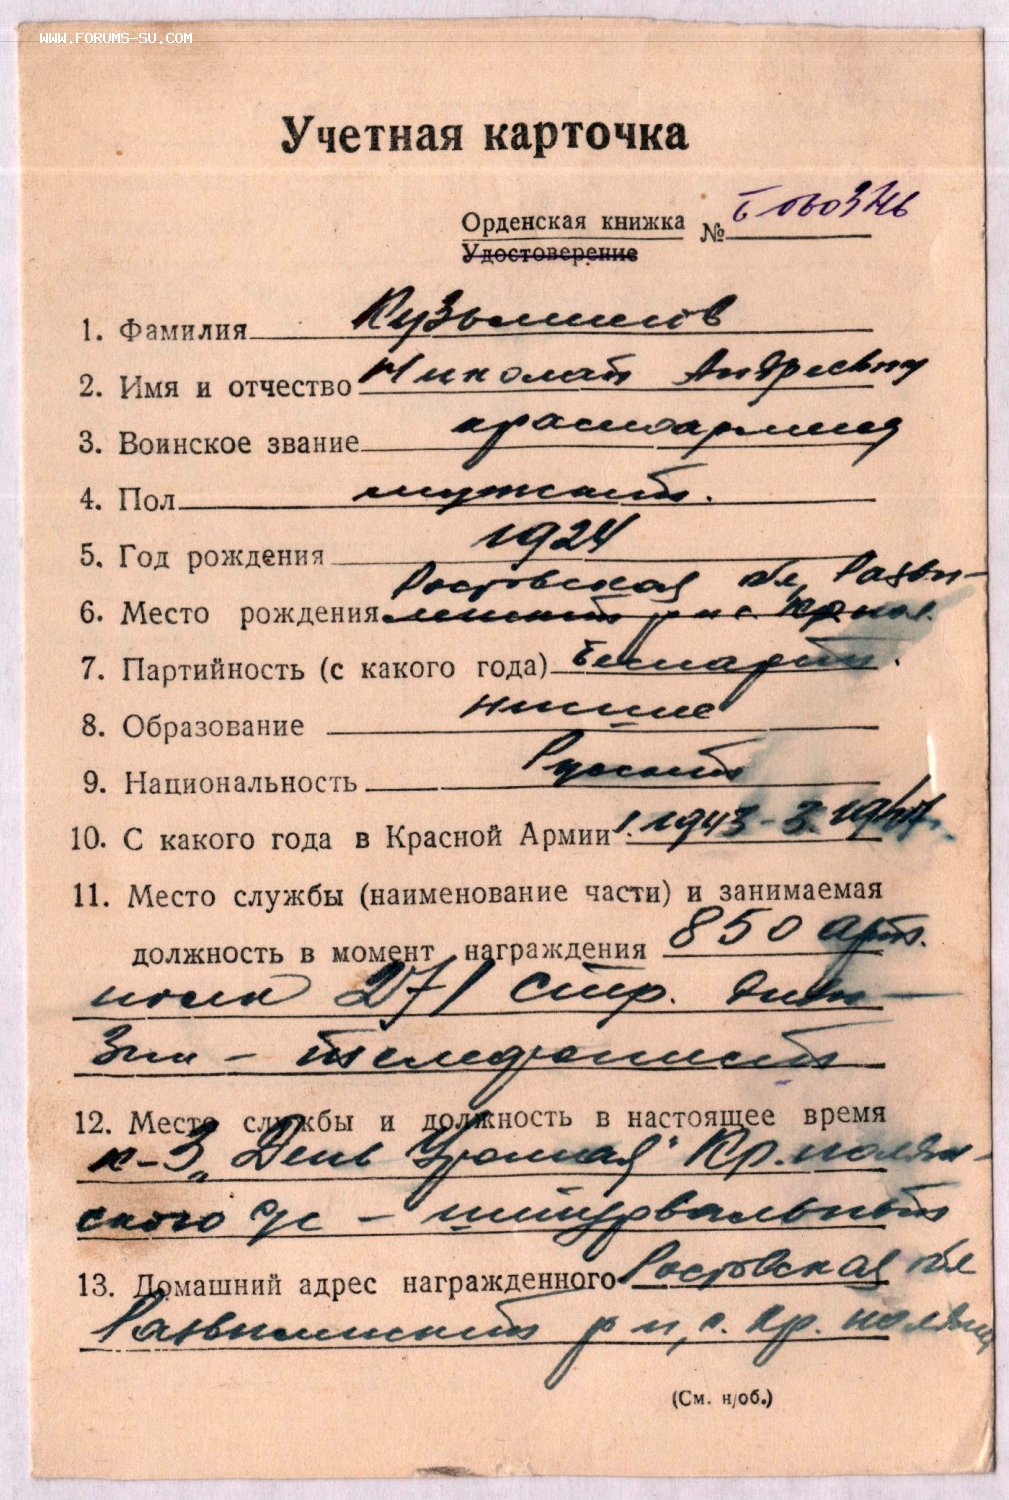 WWW.FORUMS-SU.COM
Учетная карточка
Орденская книжка №
Удостоверение
1. Фамилия Кузьминов
2. Имя и отчество Николай Андреевич
3. Воинское звание красноармеец
4. Пол мужской.
5. Год рождения 1924
Ростовская обл, Разви-
6. Место рождения ленский р-н с Кр пол.
7. Партийность (с какого года) беспарт.
8. Образование низшее
9. Национальность Русский
10. С какого года в Красной Армии 1943 - 3. 1947
11. Место службы (наименование части) и занимаемая
должность в момент награждения 850 арт.
полк 271 стр. диви-
зии - телефонист
12. Место службы и должность в настоящее время
к-з „День Урожая" Кр. полян-
ского с/с - штурвальный
13. Домашний адрес награжденного Ростовская обл
Развиленский р-н, с. Кр. поляна
(См. н/об.)